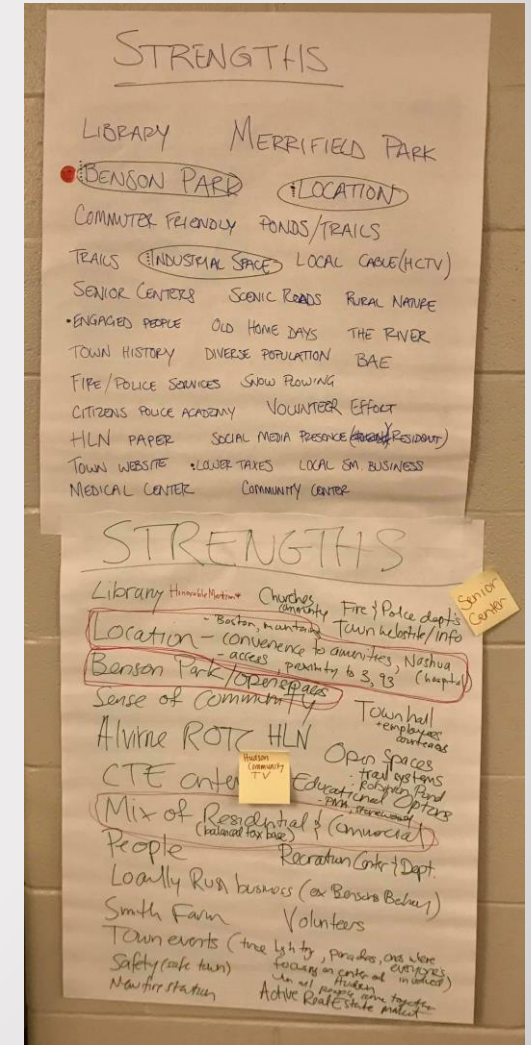 STRENGTHS
LIBRARY MERRIFIELD PARK
BENSON PARK LOCATION
COMMUTER FRIENDLY PONDS/TRAILS
TRAILS INDUSTRIAL SPACE LOCAL CABLE (HCTV)
SENIOR CENTERS SCENIC ROADS RURAL NATURE
•ENGAGED PEOPLE OLD HOME DAYS THE RIVER
TOWN HISTORY DIVERSE POPULATION BAE
FIRE/POLICE SERVICES SNOW PLOWING
CITIZENS POLICE ACADEMY VOLUNTEER EFFORT
HLN PAPER SOCIAL MEDIA PRESENCE (RESIDENT)
TOWN WEBSITE •LOWER TAXES LOCAL SM. BUSINESS
MEDICAL CENTER COMMUNITY CENTER
STRENGTHS
Library Honorable Mention Churches community Fire & Police dept's
Senior Center
- Boston, mountains Town website/info
Location - convenience to amenities, Nashua
- access, proximity to 3, 93 (hospital)
Benson Park/open spaces
Sense of Community Town hall
+ employees
Alvirne ROTC HLN Open Spaces
- trail systems
Hudson Community TV
- Robinson Pond
CTE center Educational Options
Mix of Residential & Commercial
(balanced tax base)
People Recreation Center & Dept.
Locally Run business (ex Bensons Bakery)
Smith Farm Volunteers
Town events (tree lighting, parades,
Safety (safe town)
when all people come together
New fire station Active Real Estate market